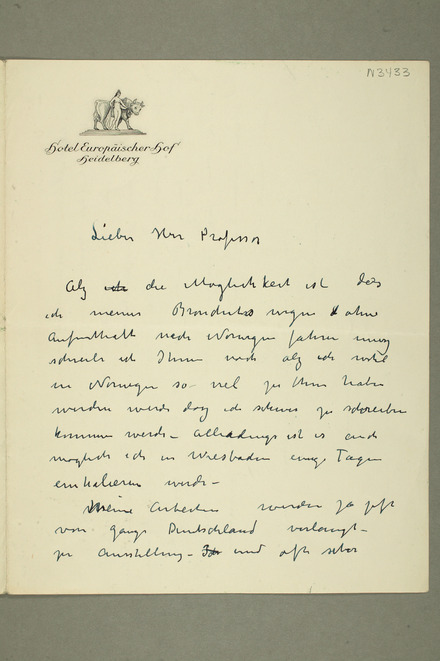 N3433
Hotel Europäischer Hof
Heidelberg
Lieber Herr Professor
Alz die Möglichkeit ist dass
ich meines wegen ohne
Aufenthalt nach Norwegen fahren muss
schreibe ich Ihnen noch alz ich wohl
in Norwegen so viel zu thun haben
werden werde daz ich schwer zu schreiben
kommen werde – Allerdings ist es auch
möglich ich in Wiesbaden einige Tagen
werde –
Meine Arbeiten werden ja jetzt
von ganze Deutschland verlangt –
zu Ausstellung – und oft schon